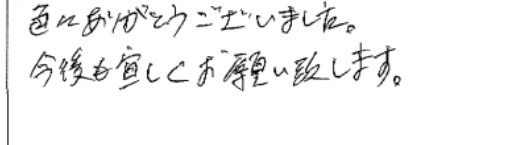 色々ありがとうございました。
今後も宜しくお願い致します。